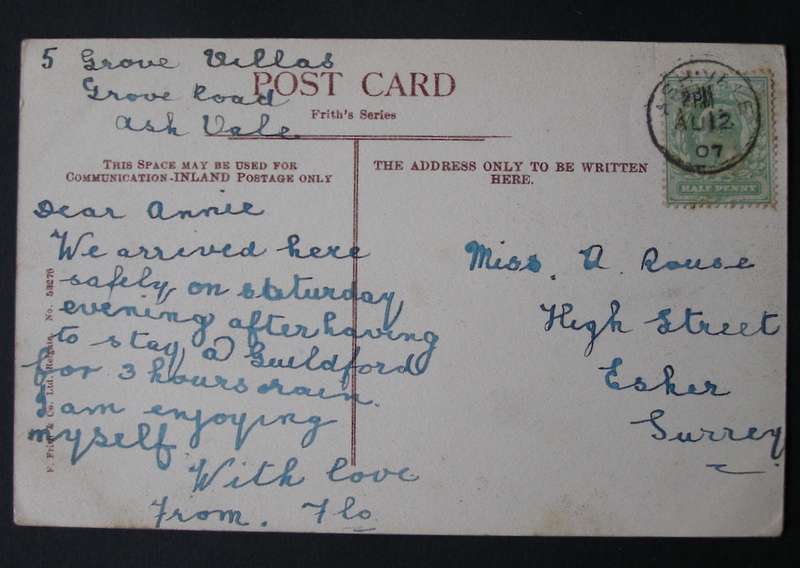 5 Grove Villas
Grove Road
Ash Vale
POST CARD
Frith's Series
THIS SPACE MAY BE USED FOR
COMMUNICATION-INLAND POSTAGE ONLY
THE ADDRESS ONLY TO BE WRITTEN
HERE.
ASH VALE
PM
AU 12
07
HALF PENNY
Dear Annie
We arrived here
safely, on saturday
evening after having
to stay, a Guildford
for 3 hours rain.
I am enjoying
myself
With love
From. Flo
Miss. A. Rouse
High Street
Esher
Surrey
F. Frith & Co. Ltd. Reigate. No. 58276